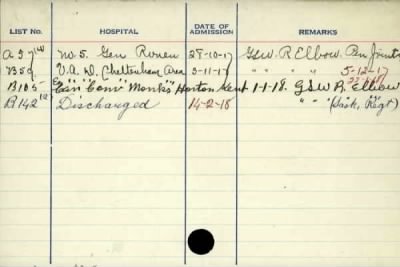 LIST No. HOSPITAL DATE OF ADMISSION REMARKS
No. 5. Gen Rouen 28-10-17 GSW. R Elbow. Pen Joints
B59 V.A.D. Cheltenham Area 3-11-17 " " " " 5-12-17
B105 Can Conv Monks Horton Kent 1-1-18. GSW R. Elbow
B142 Discharged 14-2-18 " " " (Sask. Regt)